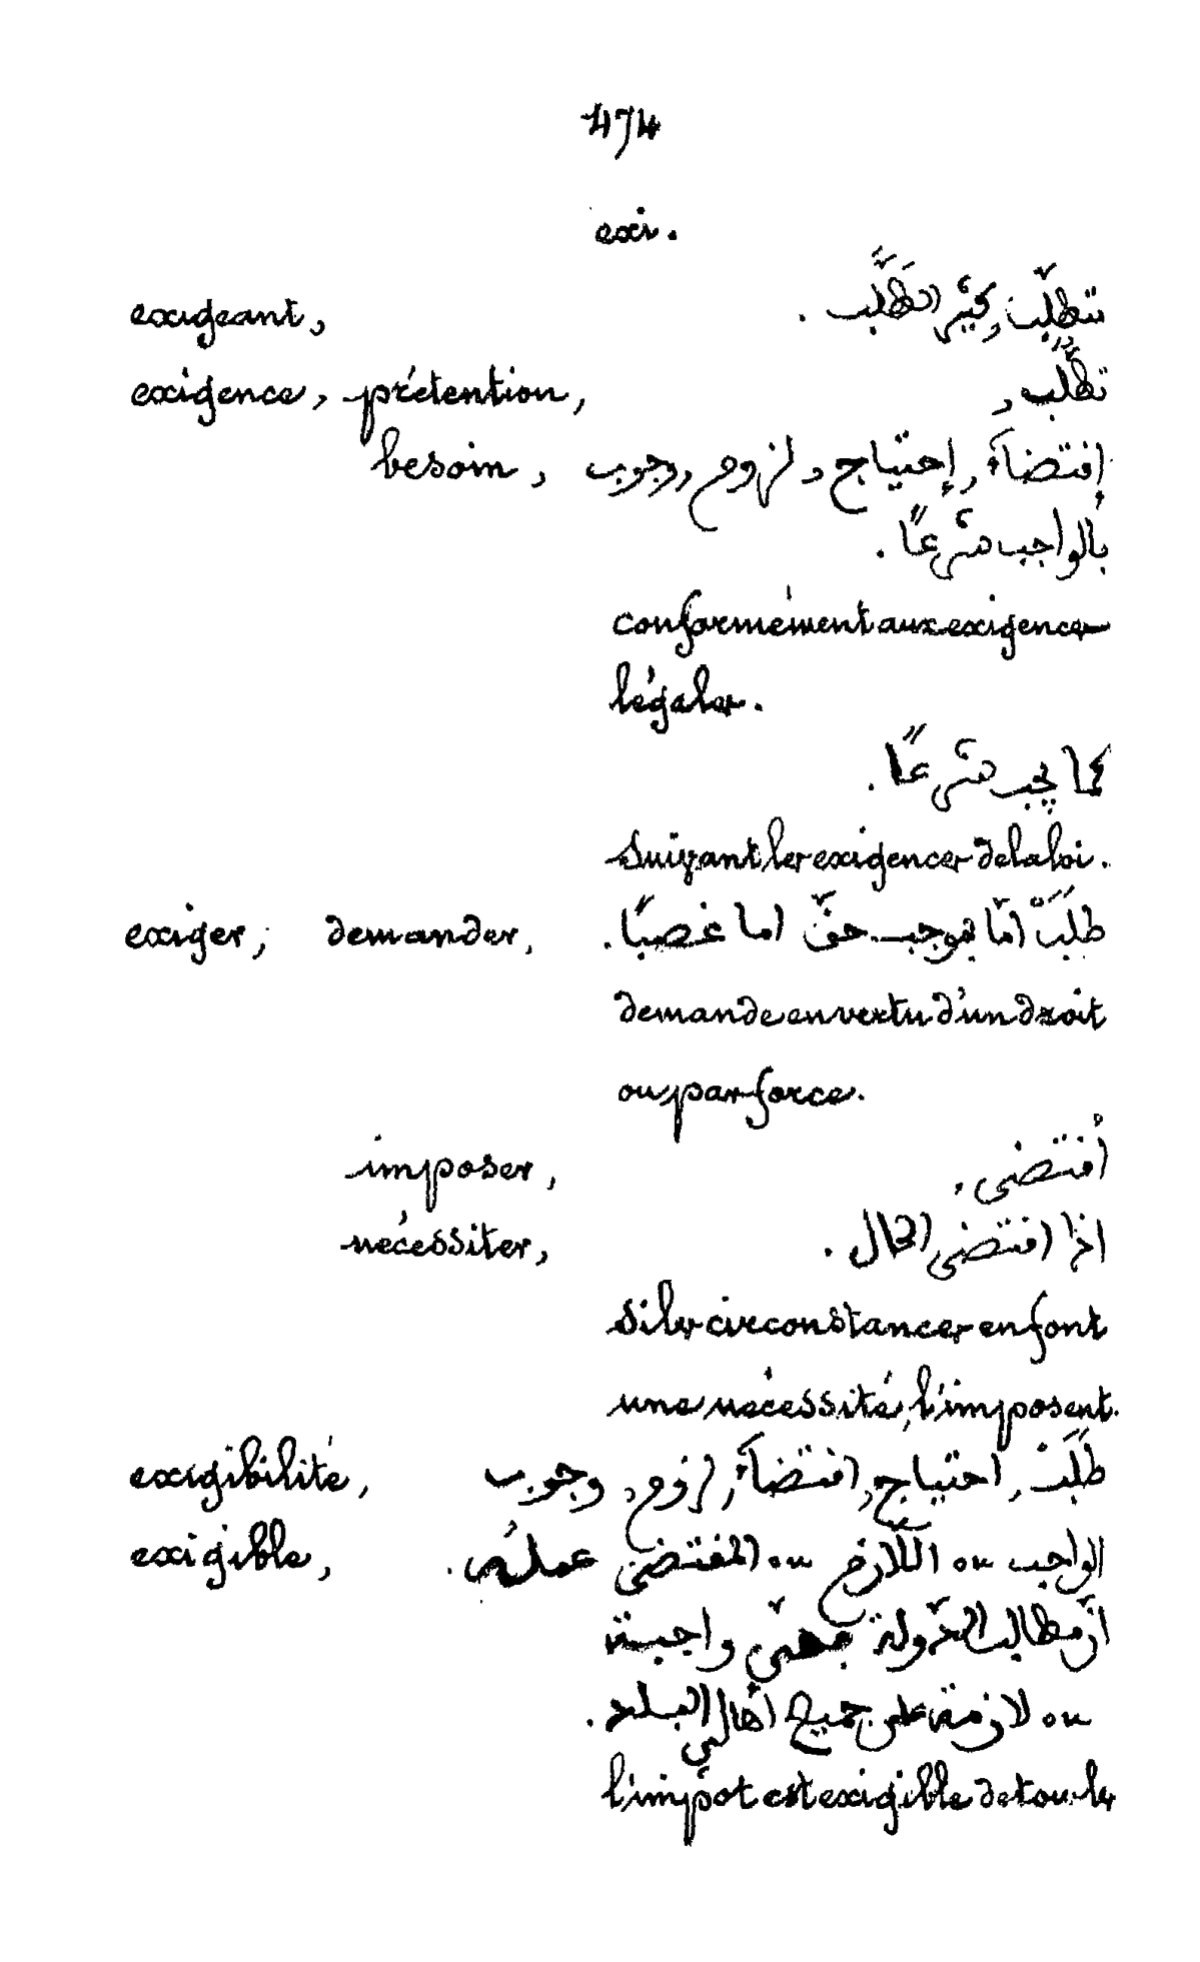 474
exi.
exigeant, متطلّب, كثير التَطَلُّب.
exigence, prétention, تطَلُّب,
besoin, إقتضاء, إحتياج, لزوم, وجوب
بالواجب شرعًا.
conformément aux exigences
légales.
كما يجب شرعًا.
suivant les exigences de la loi.
exiger, demander, طَلَبَ امّا بموجب حقّ اما غصبًا.
demande en vertu d'un droit
ou par force.
imposer, أقتضى,
nécessiter, اذا اقتضى الحال.
si les circonstances en font
une nécessité, l'imposent.
exigibilité, طَلَب, احتياج, اقتضاء, لزوم, وجوب
exigible, الواجب ou اللازم ou المقتضى عمله.
انّ مطالب الدّولة فهي واجبة
ou لازمة على جميع أهالي البلد.
l'impôt est exigible de tous les